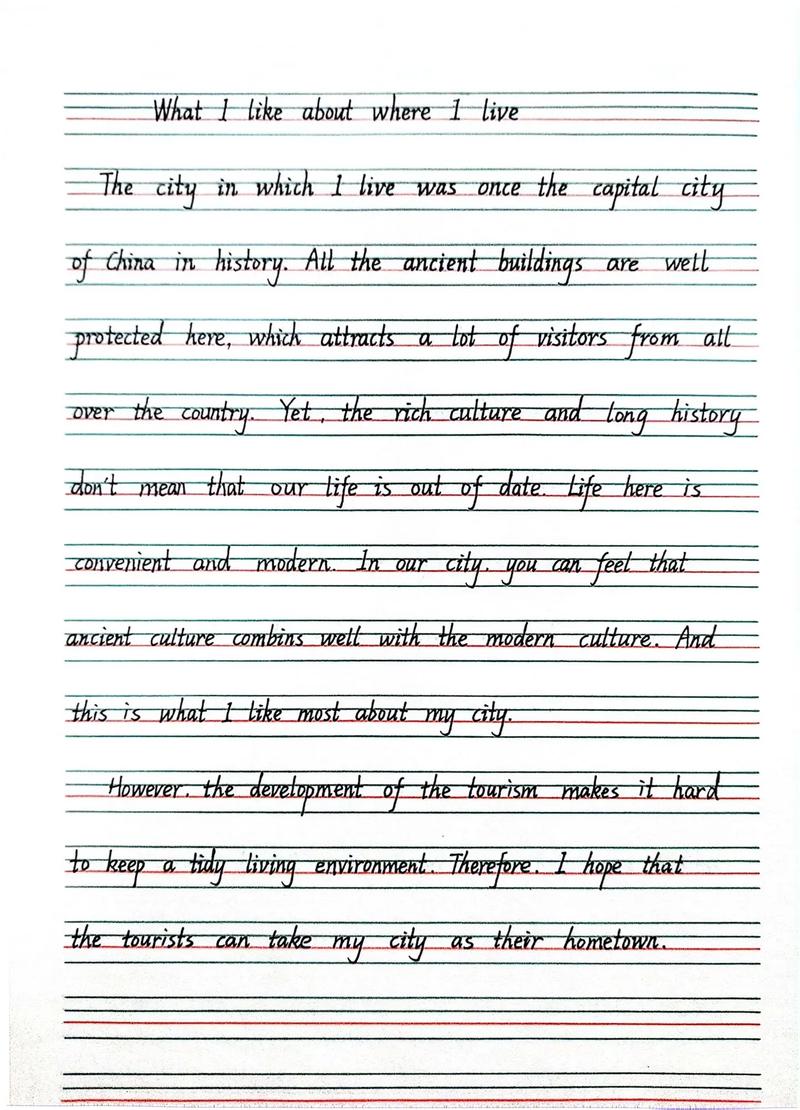 What I like about where I live
The city in which I live was once the capital city
of China in history. All the ancient buildings are well
protected here, which attracts a lot of visitors from all
over the country. Yet, the rich culture and long history
don't mean that our life is out of date. Life here is
convenient and modern. In our city, you can feel that
ancient culture combins well with the modern culture. And
this is what I like most about my city.
However, the development of the tourism makes it hard
to keep a tidy living environment. Therefore, I hope that
the tourists can take my city as their hometown.